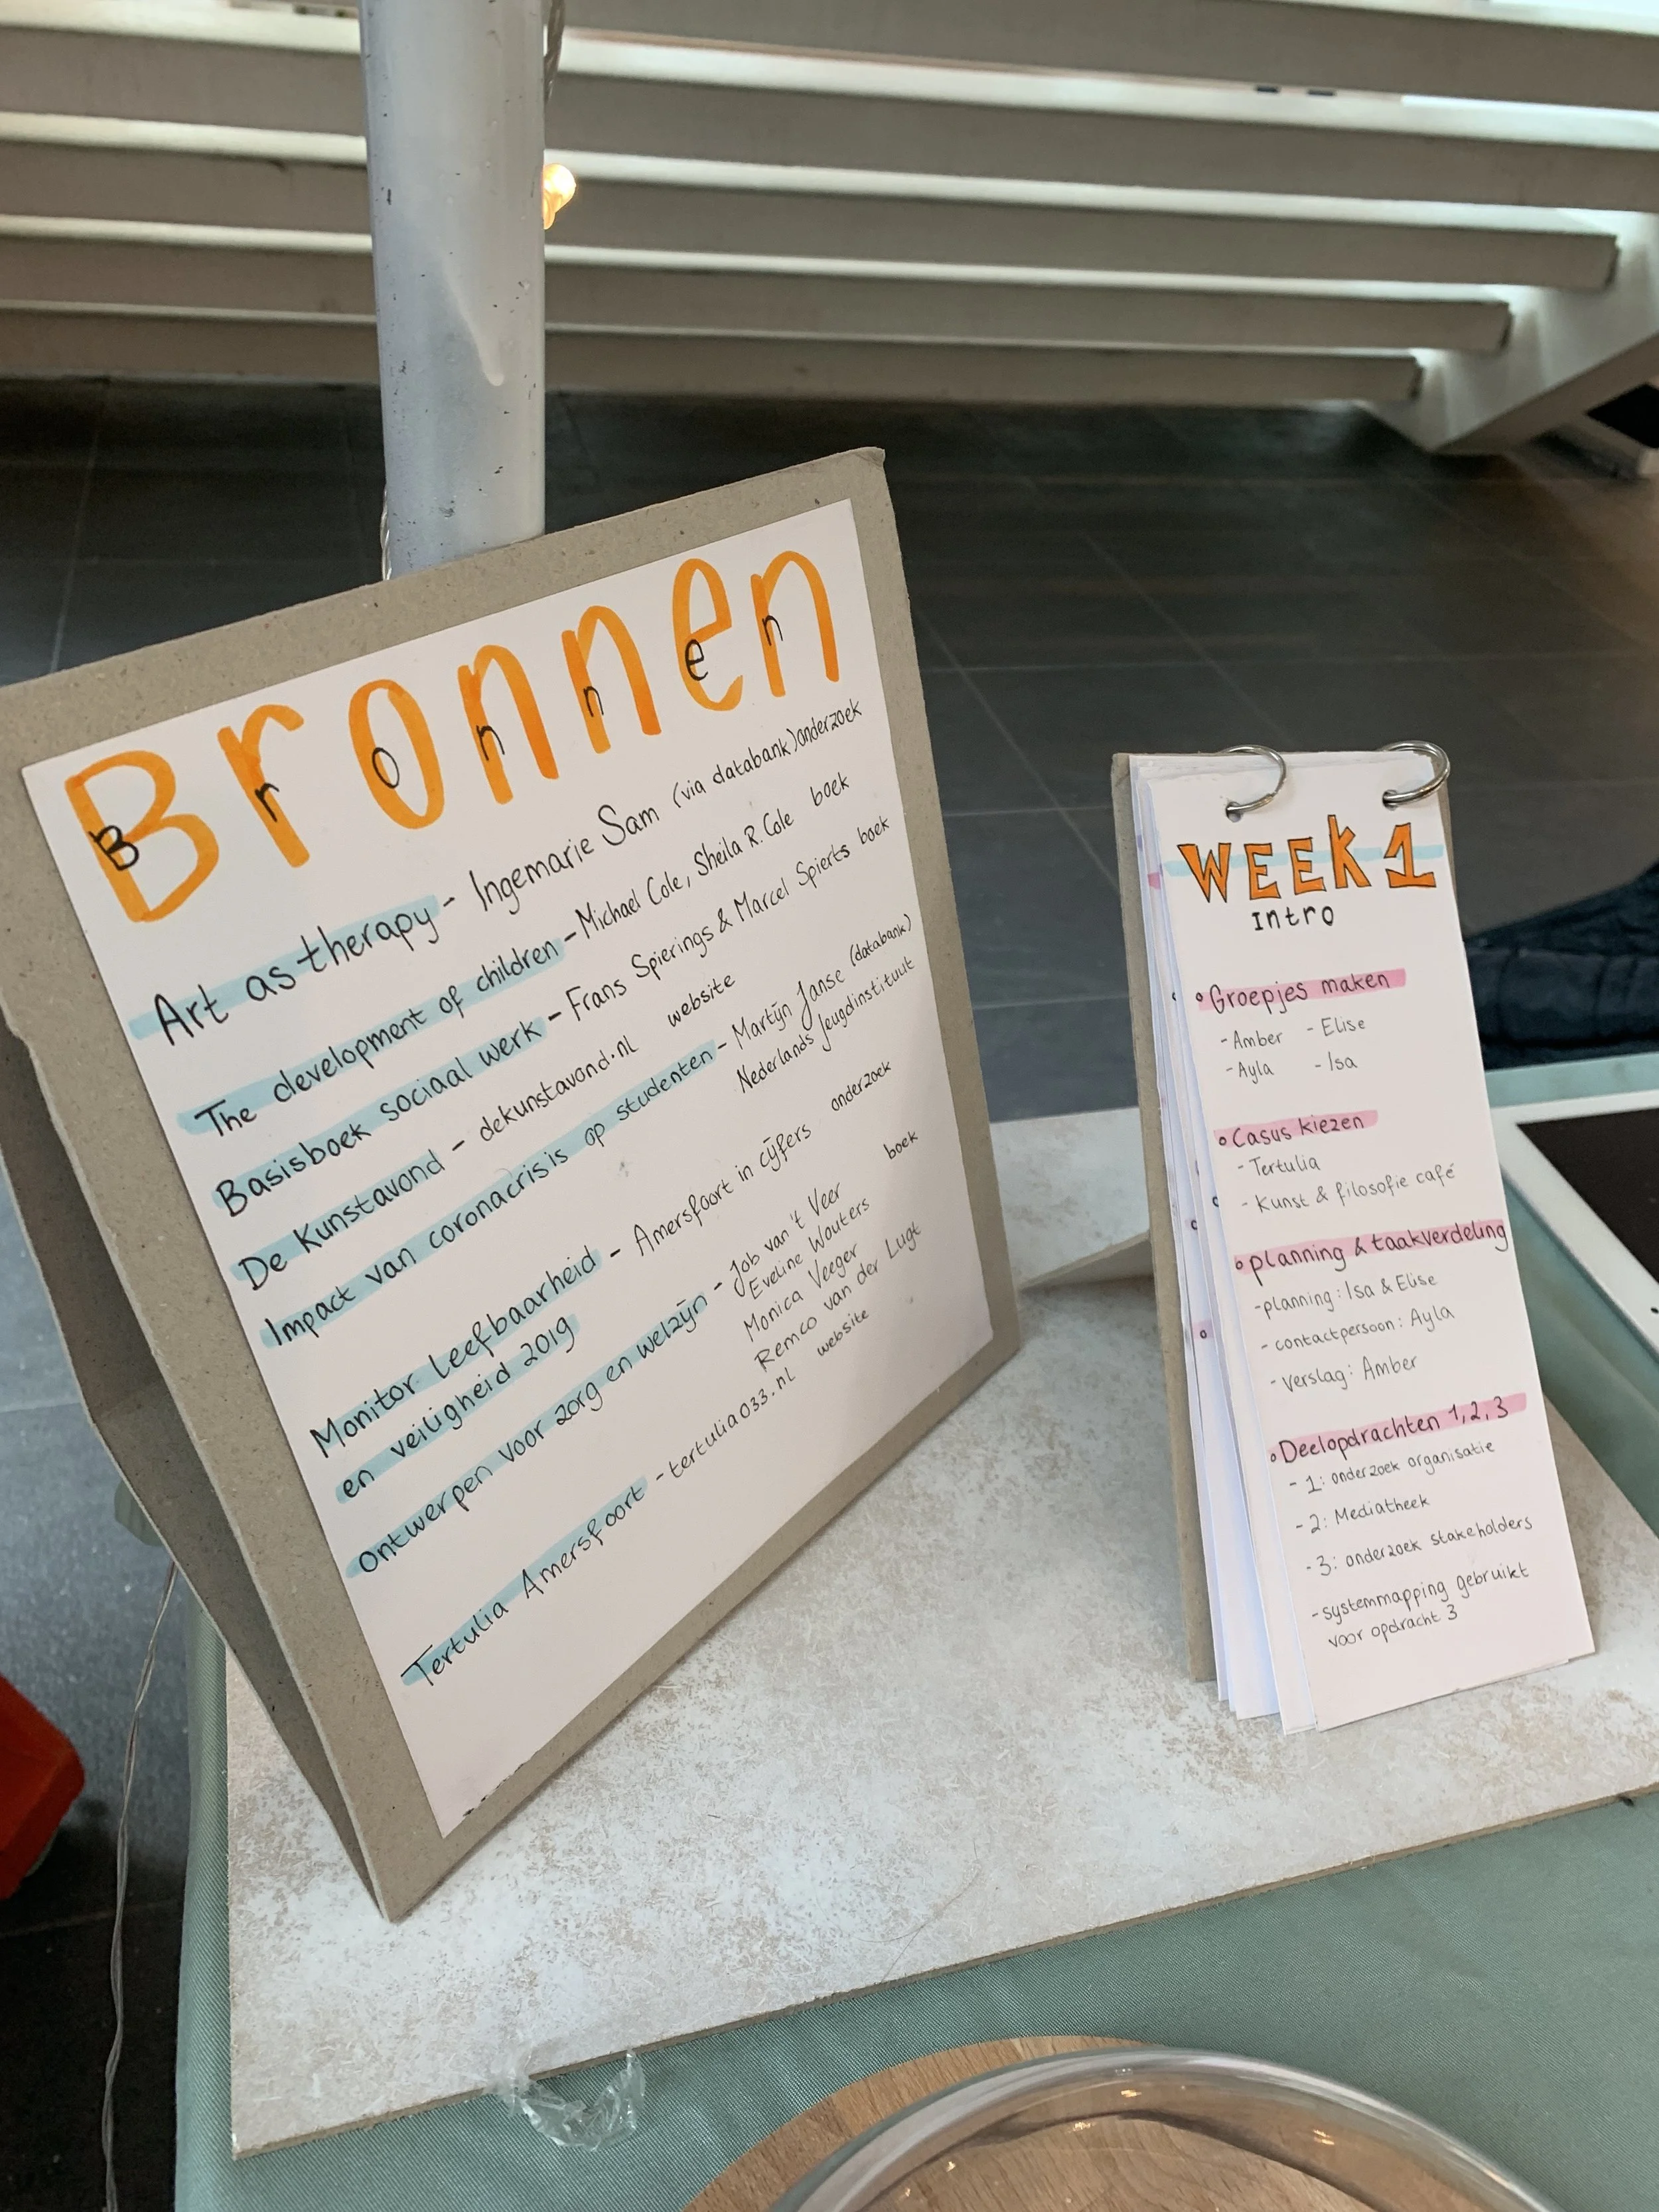 Bronnen
Bronnen
Art as therapy - Ingemarie Sam (via databank) onderzoek
The development of children - Michael Cole, Sheila R. Cole boek
Basisboek sociaal werk - Frans Spierings & Marcel Spierts boek
De Kunstavond - dekunstavond.nl website
Impact van coronacrisis op studenten - Martijn Janse (databank)
Nederlands Jeugdinstituut
Monitor Leefbaarheid - Amersfoort in cijfers onderzoek
en veiligheid 2019
Ontwerpen voor zorg en welzijn - Job van 't Veer boek
Eveline Wouters
Monica Veeger
Remco van der Lugt
Tertulia Amersfoort - tertulia033.nl website
WEEK 1
Intro
Groepjes maken
- Amber - Elise
- Ayla - Isa
Casus kiezen
- Tertulia
- Kunst & filosofie café
planning & taakverdeling
- planning: Isa & Elise
- contactpersoon: Ayla
- verslag: Amber
Deelopdrachten 1, 2, 3
- 1: onderzoek organisatie
- 2: Mediatheek
- 3: onderzoek stakeholders
- systemmapping gebruikt
voor opdracht 3